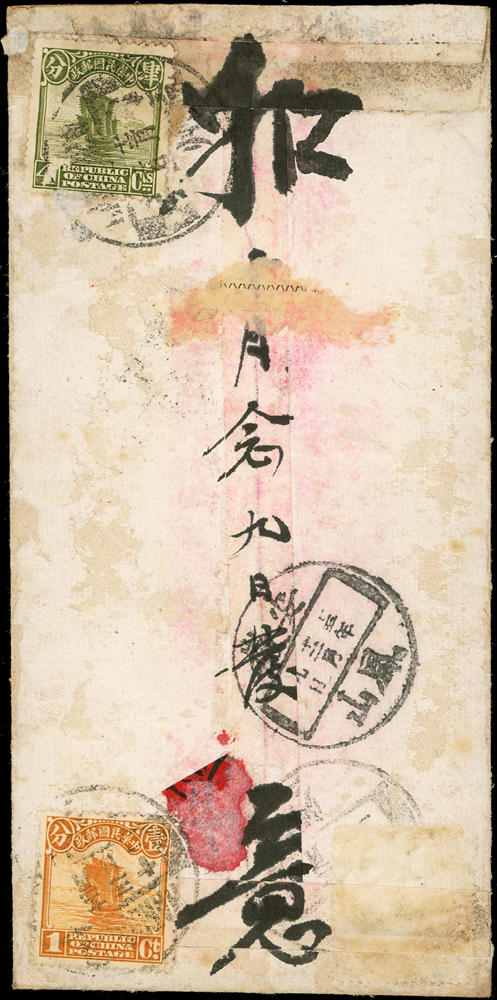 中華民國郵政
肆分
4 Cts
REPUBLIC
OF CHINA
POSTAGE
如
月念九日發
意
鳳山
中華民國郵政
壹分
1 Ct.
REPUBLIC
OF CHINA
POSTAGE